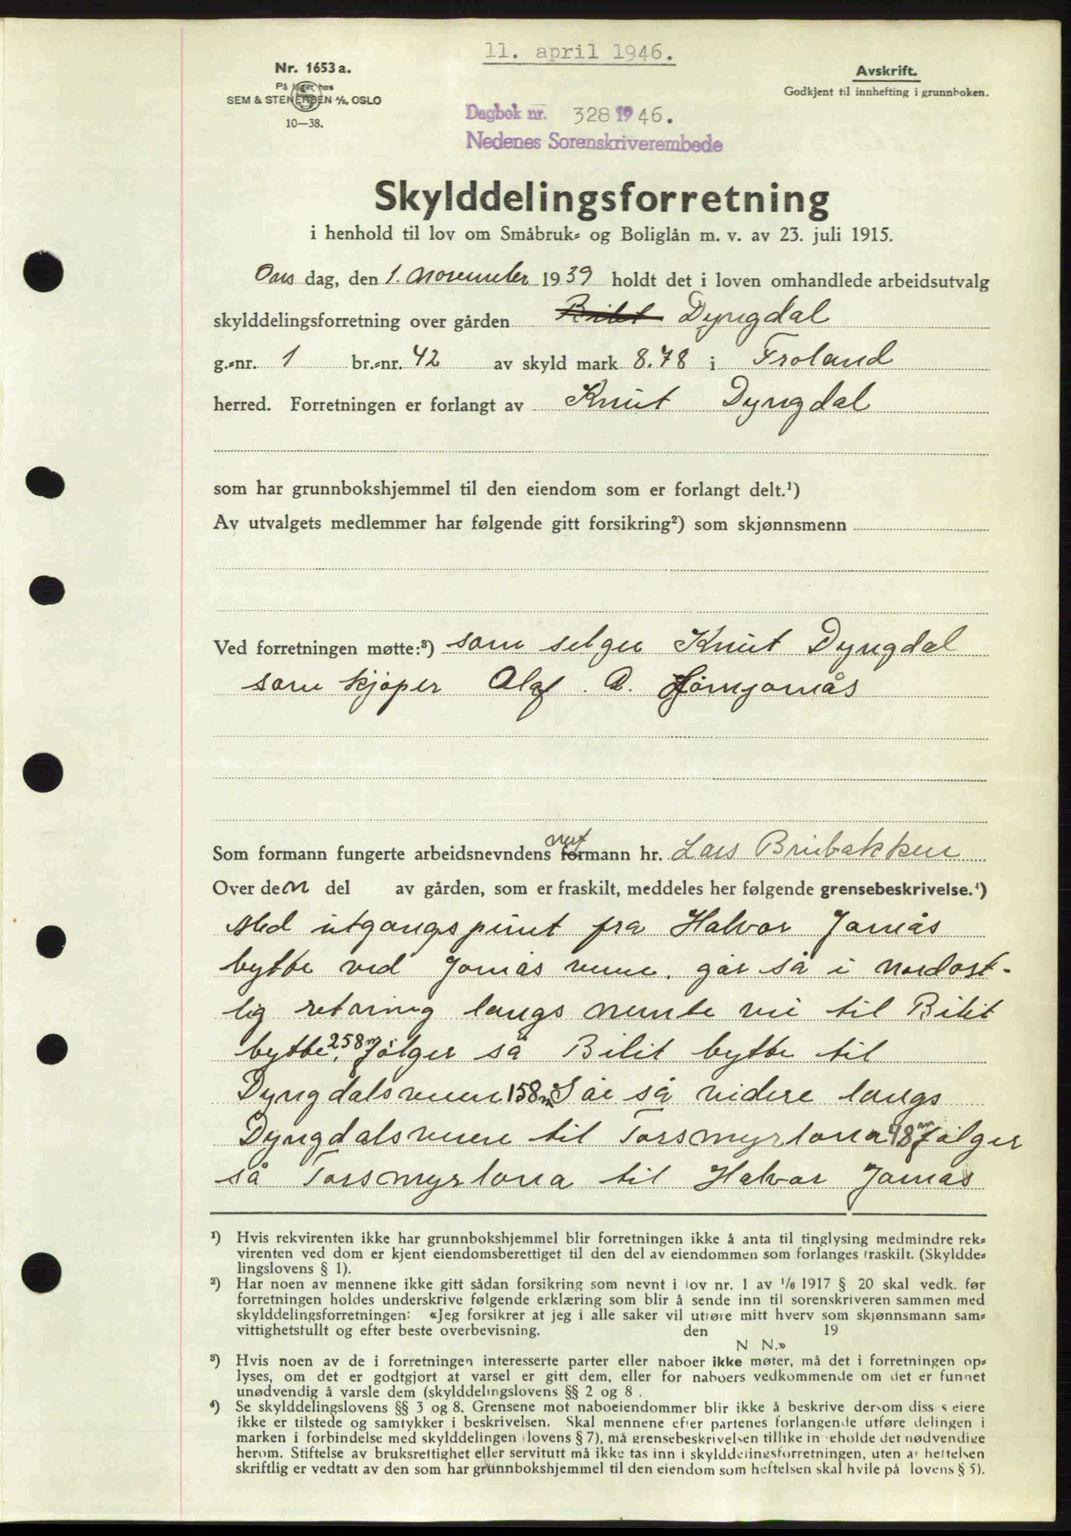 11. april 1946.
Nr. 1653 a.
På lager hos
SEM & STENERSEN A/S, OSLO
10—38.
Avskrift.
Godkjent til innhefting i grunnboken.
Dagbok nr. 328 1946.
Nedenes Sorenskriverembede
Skylddelingsforretning
i henhold til lov om Småbruk- og Boliglån m. v. av 23. juli 1915.
Ons dag, den 1. november 1939 holdt det i loven omhandlede arbeidsutvalg
skylddelingsforretning over gården Bilit Dyngdal
g.-nr. 1 br.-nr. 42 av skyld mark 8.78 i Froland
herred. Forretningen er forlangt av Knut Dyngdal
som har grunnbokshjemmel til den eiendom som er forlangt delt.¹)
Av utvalgets medlemmer har følgende gitt forsikring²) som skjønnsmenn
Ved forretningen møtte:³) som selger Knut Dyngdal
som kjøper Olaf A.
Som formann fungerte arbeidsnevndens formann hr. Lars Brubakken
Over den del av gården, som er fraskilt, meddeles her følgende grensebeskrivelse.⁴)
Med utgangspunt fra Halvor Jomås
bytte ved Jomås veien. går så i nordøst-
lig retning langs nemte vei til Bilit
bytte, 258 m følger så Bilit bytte til
Dyngdalsveien 158 m Så så videre langs
Dyngdalsveien til Torsmyrlona 48 m følger
så Torsmyrlona til Halvor Jomås
¹) Hvis rekvirenten ikke har grunnbokshjemmel blir forretningen ikke å anta til tinglysing medmindre rek-
virenten ved dom er kjent eiendomsberettiget til den del av eiendommen som forlanges fraskilt. (Skyldde-
lingslovens § 1).
²) Har noen av mennene ikke gitt sådan forsikring som nevnt i lov nr. 1 av 1/6 1917 § 20 skal vedk. før
forretningen holdes underskrive følgende erklæring som blir å sende inn til sorenskriveren sammen med
skylddelingsforretningen: «Jeg forsikrer at jeg i alle saker vil utføre mitt hverv som skjønnsmann sam-
vittighetsfullt og efter beste overbevisning. den 19
N N.»
³) Hvis noen av de i forretningen interesserte parter eller naboer ikke møter, må det i forretningen op-
lyses, om det er godtgjort at varsel er gitt dem, eller for naboers vedkommende om det er funnet
unødvendig å varsle dem (skylddelingslovens §§ 2 og 8 .
⁴) Se skylddelingslovens §§ 3 og 8. Grensene mot naboeiendommer blir ikke å beskrive dersom diss s eiere
ikke er tilstede og samtykker i beskrivelsen. Skal mennene efter partenes forlangende utføre delingen i
marken i forbindelse med skylddelingen (lovens § 7), må grensebeskrivelsen tillike in eholde det nødvendige
herom. Stiftelse av bruksrettighet eller servitutt må ikke tas inn i skylddelingsforretningen, uten at heftelsen
skriftlig er vedtatt av den som har grunnbokshjemmel til den eiendom som heftelsen skal hvile på lovens § 5).